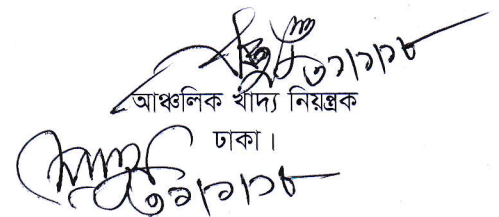 ৩১/১/১৮
আঞ্চলিক খাদ্য নিয়ন্ত্রক
ঢাকা।
৩১/১/১৮